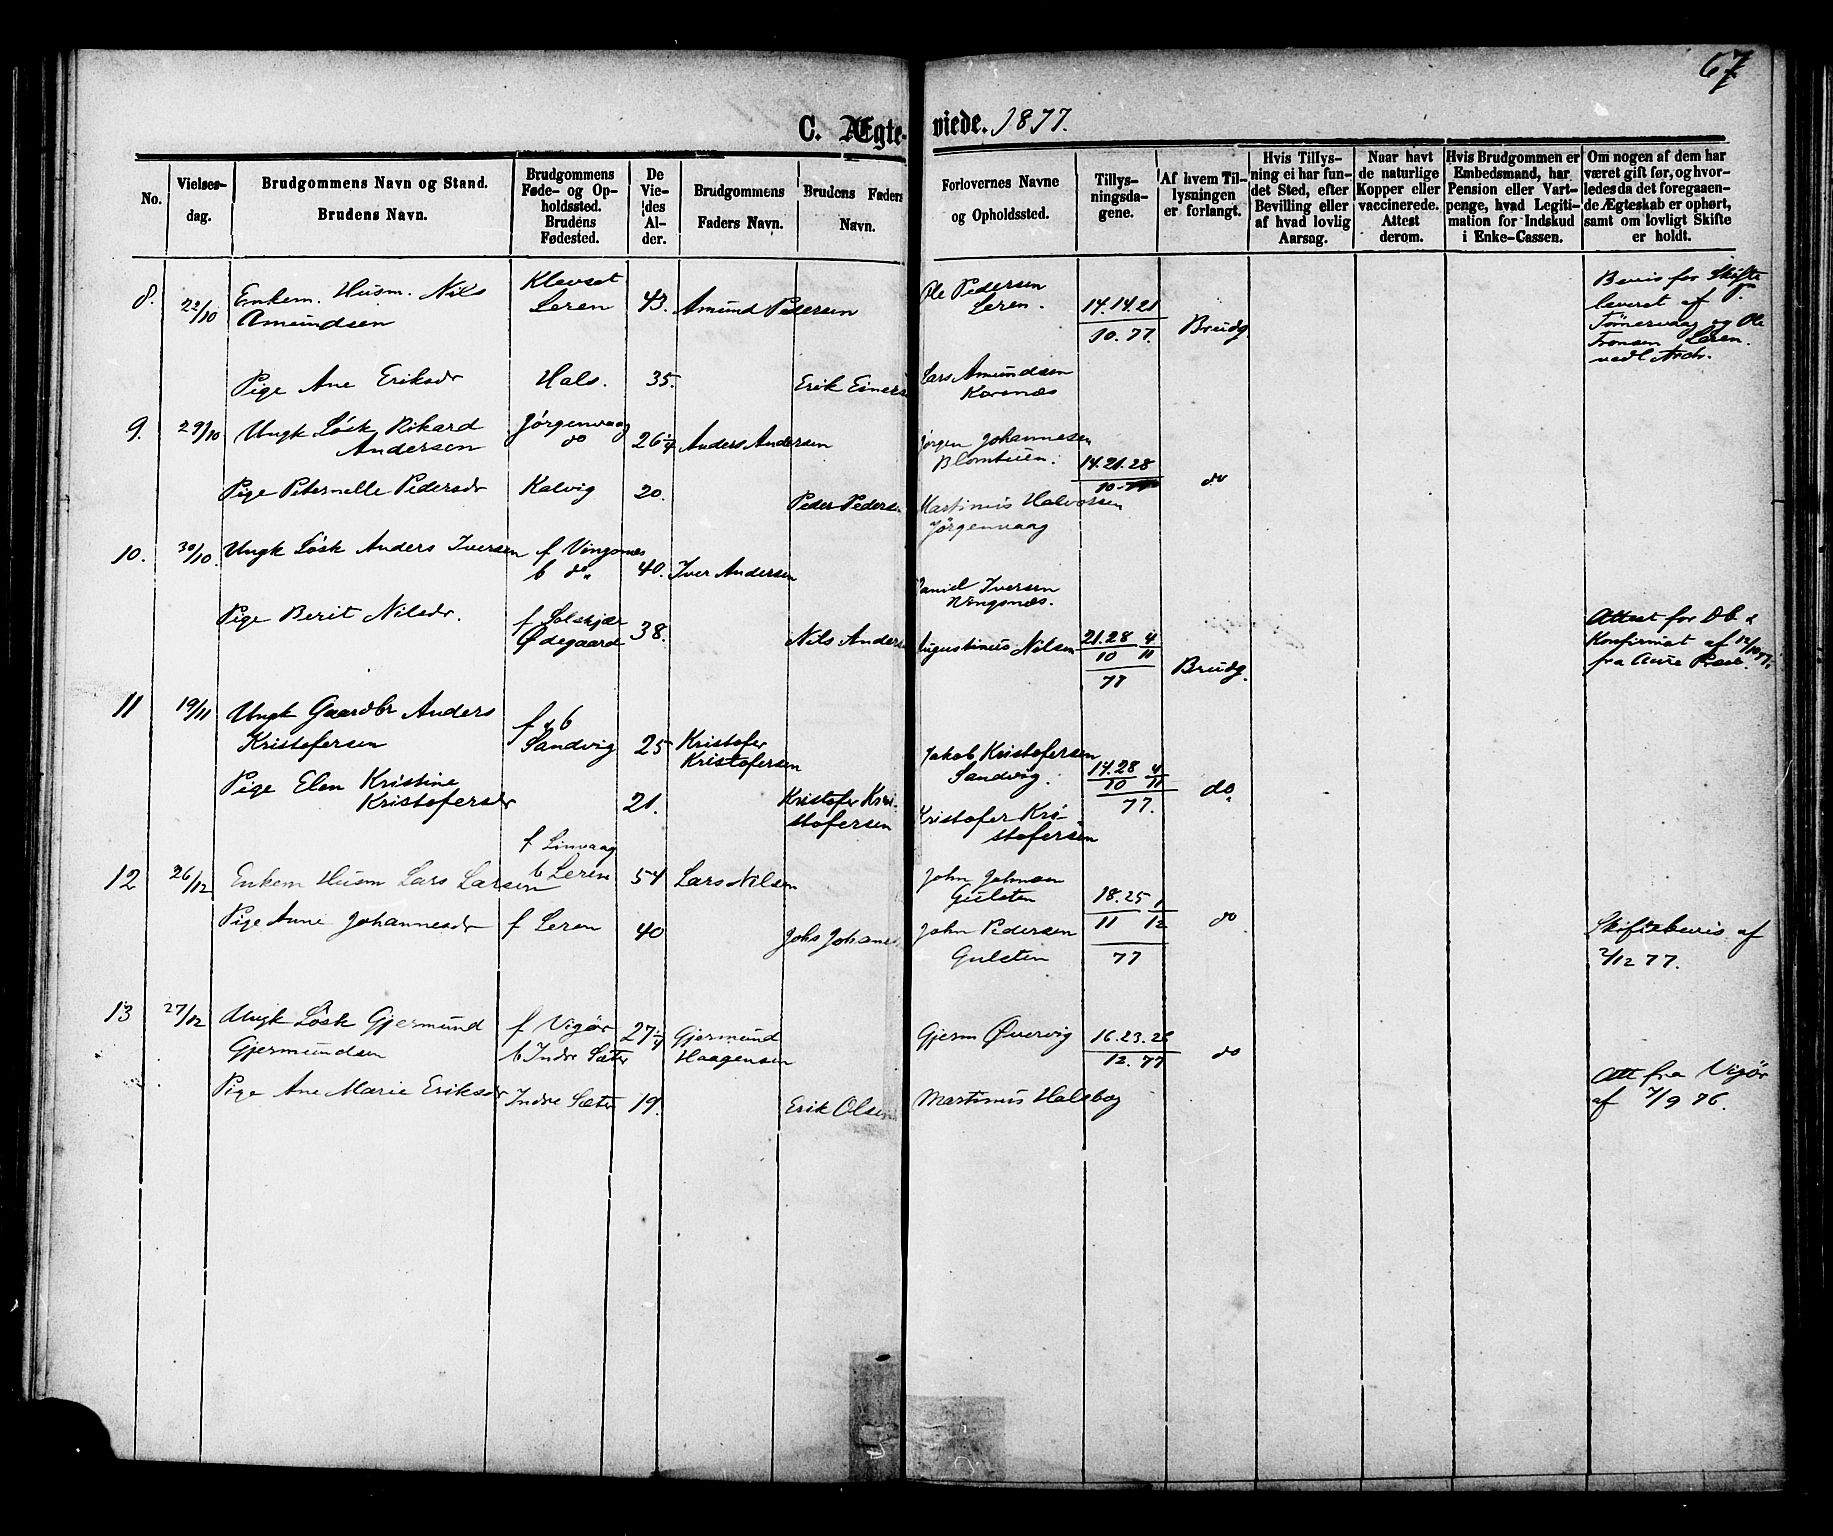 67
C. Ægte- viede. 1877.
No.
Vielses-
dag.
Brudgommens Navn og Stand.
Brudens Navn.
Brudgommens
Føde- og Op-
holdssted.
Brudens
Fødested.
De
Vie-
des
Al-
der.
Brudgommens
Faders Navn.
Brudens Faders
Navn.
Forlovernes Navne
og Opholdssted.
Tillys-
ningsda-
gene.
Af hvem Til-
lysningen
er forlangt.
Hvis Tillys-
ning ei har fun-
det Sted, efter
Bevilling eller
af hvad lovlig
Aarsag.
Naar havt
de naturlige
Kopper eller
vaccinerede.
Attest
derom.
Hvis Brudgommen er
Embedsmand, har
Pension eller Vart-
penge, hvad Legiti-
mation for Indskud
i Enke-Cassen.
Om nogen af dem har
været gift før, og hvor-
ledes da det foregaaen-
de Ægteskab er ophørt,
samt om lovligt Skifte
er holdt.
8.
22/10
Enkem. Husm. Nils
Amundsen
Klevset
Leren
43.
Amund Pedersen
Ole Pedersen
Leren.
14.14.21
10. 77.
Brudg.
Bevis for Skifte
leveret af
Tømervaag og Ole
Tronsen Leren.
vedl. Arch.
Pige Ane Eriksdr
Hals.
35.
Erik Einers
Lars Amundsen
Korsnæs
9.
29/10
Ungk Løsk Rikard
Andersen
Jørgenvaag
do
26 1/4
Anders Andersen
Jørgen Johannesen
Blomtuen.
14.21.28
10-77
do
Pige Peternelle Pedersdr
Kalvig
20.
Peder Pedersen
Martinus Halvorsen
Jørgenvaag
10.
30/10
Ungk Løsk Anders Iversen
f Vingsnes
b do
40.
Iver Andersen
Daniel Iversen
Vingsnæs.
Pige Berit Nilsdr.
f Solskjær
Ødegaard
38.
Nils Anders
Augustinus Nilsen
21.28 4
10 11
77
Brudg.
Attest for Db &
Konfirmat af 12/10 77.
fra Aure Præst.
11
19/11
Ungk Gaardbr Anders
Kristofersen
f & b
Sandvig
25
Kristofer
Kristofersen
Jakob Kristofersen
Sandvig.
14.28 4
10 11
77.
do
Pige Elen Kristine
Kristofersdr
21.
Kristofer Kri-
stofersen
Kristofer Kri-
stofersen
12
26/12
Enkem Husm Lars Larsen
f Linvaag
b Leren
54
Lars Nilsen
John Johnsen
Gulsten
18.25 1
11 12
77
do
Pige Anne Johannesdr
f Leren
40
Johs Johanes
John Pedersen
Gulsten
Skiftebevis af
2/12 77.
13
27/12
Ungk Løsk Gjermund
Gjermundsen
f Vigør
b Indre Sæter
27 1/4
Gjermund
Haagensen
Gjerm Øvervig
16.23.26
12. 77
do
Pige Ane Marie Eriksdr
Indre Sæter
19.
Erik Olsen
Martinus Halsbog
Att fra Vigør
af 7/9 76.